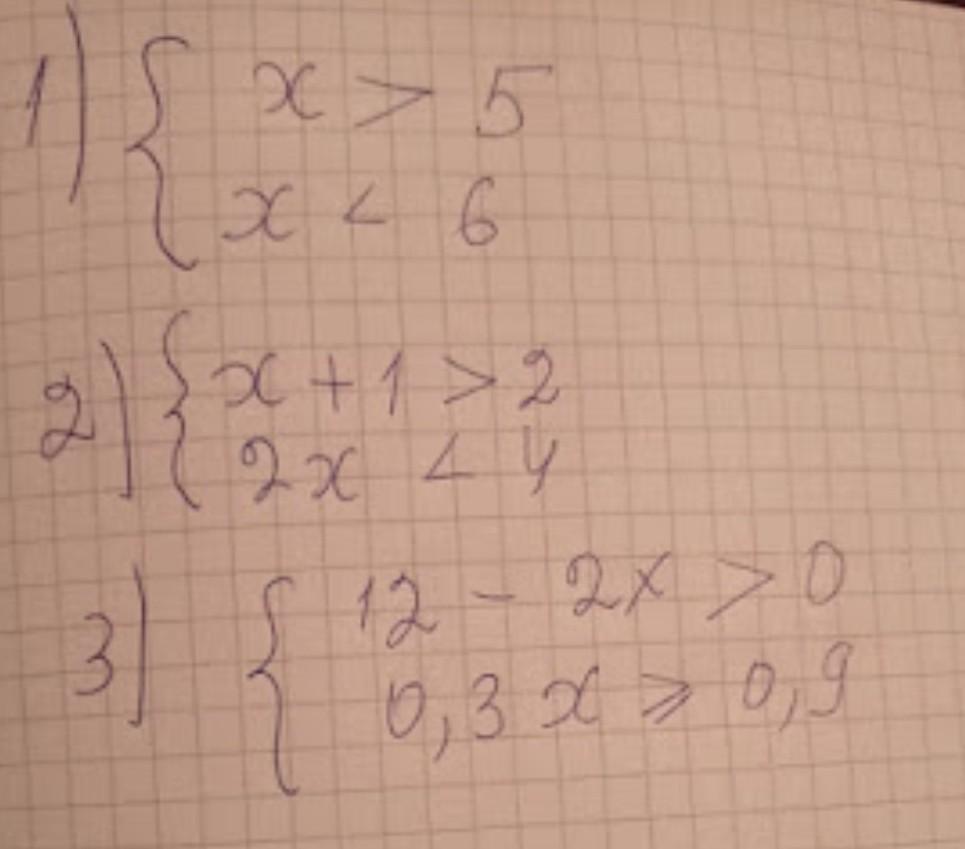 1) { x > 5
x < 6
2) { x + 1 > 2
2x < 4
3) { 12 - 2x > 0
0,3x ⩾ 0,9